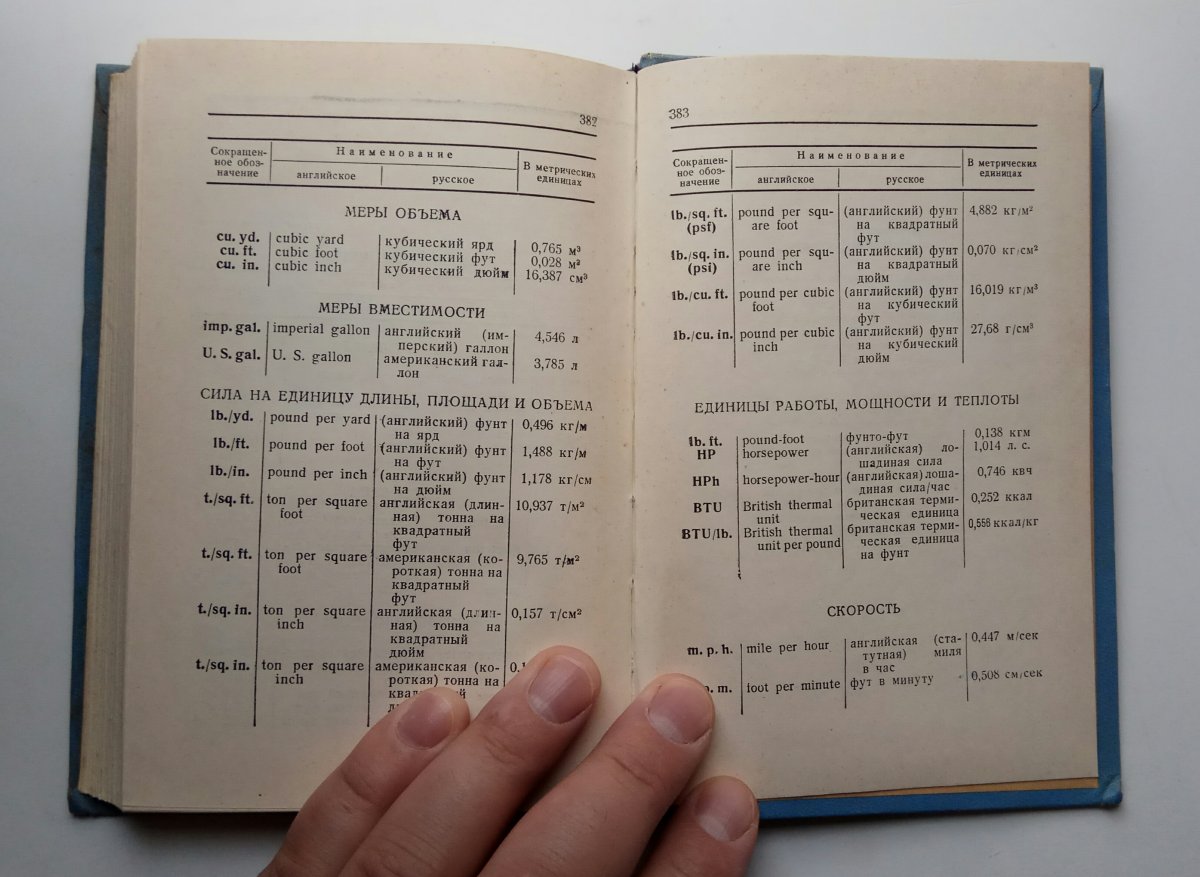 382
Сокращен-
ное обоз-
начение
Наименование
английское
русское
В метрических
единицах
МЕРЫ ОБЪЕМА
cu. yd. cubic yard кубический ярд 0,765 м³
cu. ft. cubic foot кубический фут 0,028 м³
cu. in. cubic inch кубический дюйм 16,387 см³
МЕРЫ ВМЕСТИМОСТИ
imp. gal. imperial gallon английский (им-
перский) галлон 4,546 л
U. S. gal. U. S. gallon американский гал-
лон 3,785 л
СИЛА НА ЕДИНИЦУ ДЛИНЫ, ПЛОЩАДИ И ОБЪЕМА
lb./yd. pound per yard (английский) фунт 0,496 кг/м
на ярд
lb./ft. pound per foot (английский) фунт 1,488 кг/м
на фут
lb./in. pound per inch (английский) фунт 1,178 кг/см
на дюйм
t./sq. ft. ton per square английская (длин- 10,937 т/м²
foot ная) тонна на
квадратный
фут
t./sq. ft. ton per square американская (ко- 9,765 т/м²
foot роткая) тонна на
квадратный
фут
t./sq. in. ton per square английская (длин- 0,157 т/см²
inch ная) тонна на
квадратный
дюйм
t./sq. in. ton per square американская (ко-
inch роткая) тонна на
383
Сокращен-
ное обоз-
начение
Наименование
английское
русское
В метрических
единицах
lb./sq. ft. pound per squ- (английский) фунт 4,882 кг/м²
(psf) are foot на квадратный
фут
lb./sq. in. pound per squ- (английский) фунт 0,070 кг/см²
(psi) are inch на квадратный
дюйм
lb./cu. ft. pound per cubic (английский) фунт 16,019 кг/м³
foot на кубический
фут
lb./cu. in. pound per cubic (английский) фунт 27,68 г/см³
inch на кубический
дюйм
ЕДИНИЦЫ РАБОТЫ, МОЩНОСТИ И ТЕПЛОТЫ
lb. ft. pound-foot фунто-фут 0,138 кгм
HP horsepower (английская) ло- 1,014 л. с.
шадиная сила
HPh horsepower-hour (английская) лоша- 0,746 квч
диная сила/час
BTU British thermal британская терми- 0,252 ккал
unit ческая единица
BTU/lb. British thermal британская терми- 0,556 ккал/кг
unit per pound ческая единица
на фунт
СКОРОСТЬ
m. p. h. mile per hour английская (ста- 0,447 м/сек
тутная) миля
в час
m. foot per minute фут в минуту 0,508 см/сек